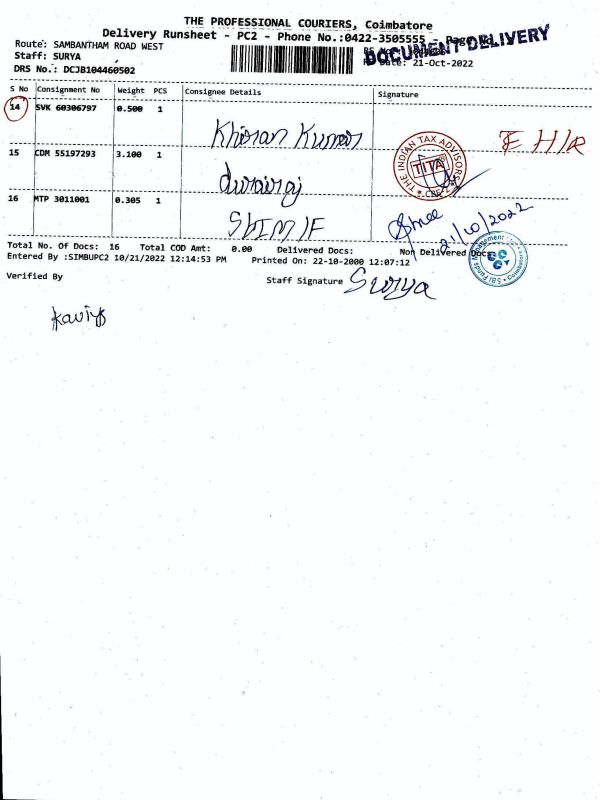 THE PROFESSIONAL COURIERS, Coimbatore
Delivery Runsheet - PC2 - Phone No.:0422-3505555 - Page No.
DOCUMENT DELIVERY
Route: SAMBANTHAM ROAD WEST
Staff: SURYA
Date: 21-Oct-2022
DRS No.: DCJB104460502
S No Consignment No Weight PCS Consignee Details Signature
14 SVK 60306797 0.500 1
Khiran Kumar
15 CDM 55197293 3.100 1
durairaj
THE INDIAN TAX ADVISORS
TITA
CBE
16 MTP 3011001 0.305 1
SBIMF
21/10/2022
Total No. Of Docs: 16 Total COD Amt: 0.00 Delivered Docs: Non Delivered Docs:
Entered By :SIMBUPC2 10/21/2022 12:14:53 PM Printed On: 22-10-2000 12:07:12
Verified By Staff Signature Surya
SBI Funds Management Coimbatore